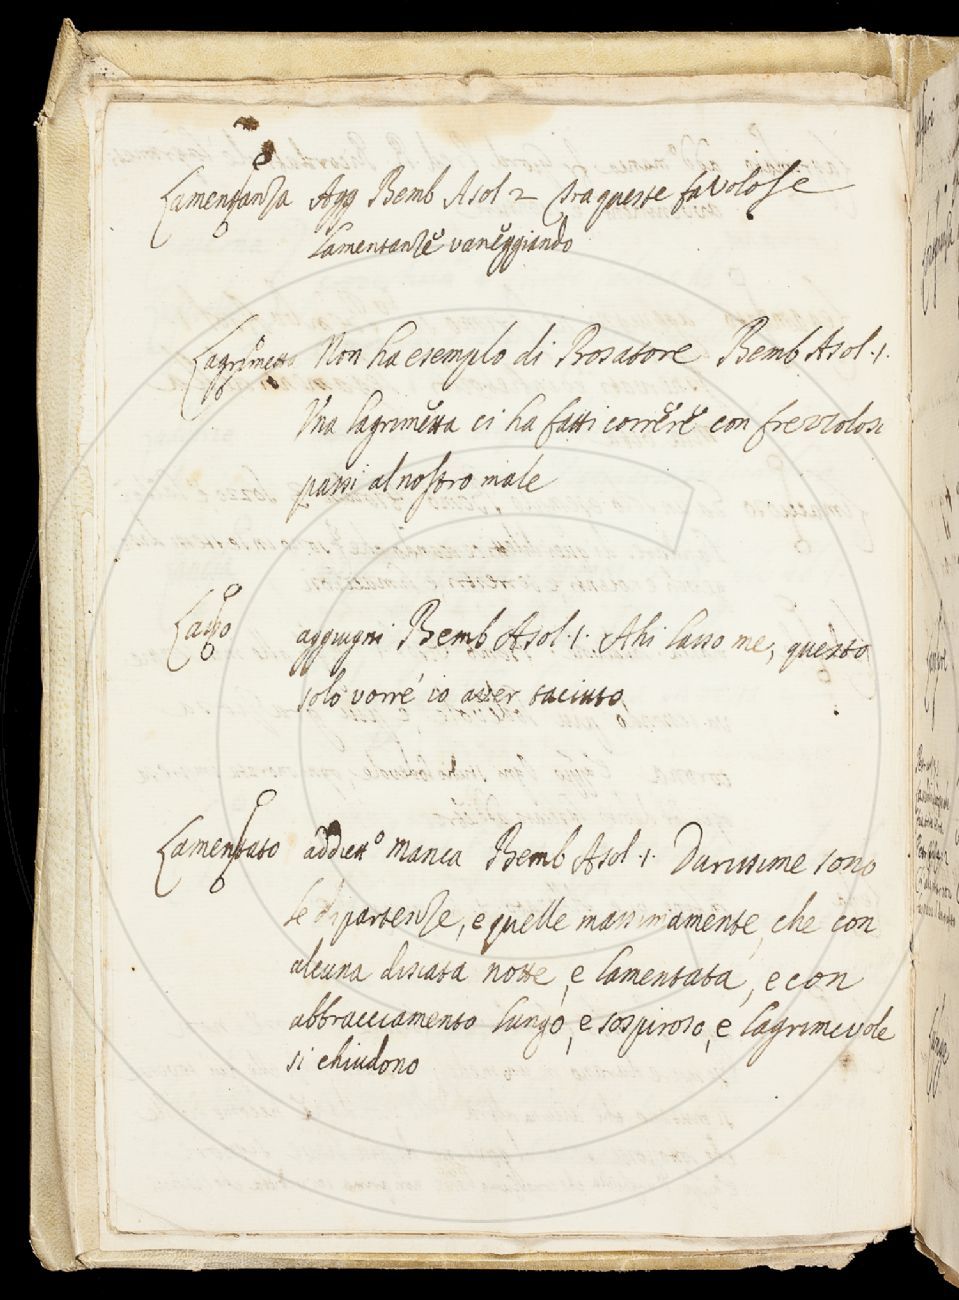 Lamentanza Agg Bemb Asol 2 tra queste favolose
lamentanze vaneggiando
Lagrimetta Non ha esemplo di Prosatore Bemb Asol. 1.
Una lagrimetta ci ha fatti correre con frezzolosi
passi al nostro male
Lasso aggiugni Bemb Asol. 1. Ahi lasso me, questo
solo vorre' io aver taciuto
Lamentato addiett.o manca Bemb Asol. 1. Durissime sono
le dipartenze, e quelle massimamente, che con
alcuna disiata notte, e lamentata, e con
abbracciamento lungo, e sospiroso, e lagrimevole
si chiudono